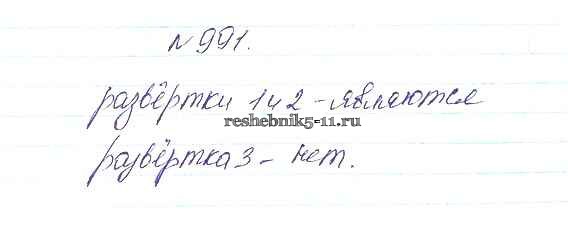 №991.
развёртки 1 и 2 - являются
reshebnik5-11.ru
развёртка 3 - нет.